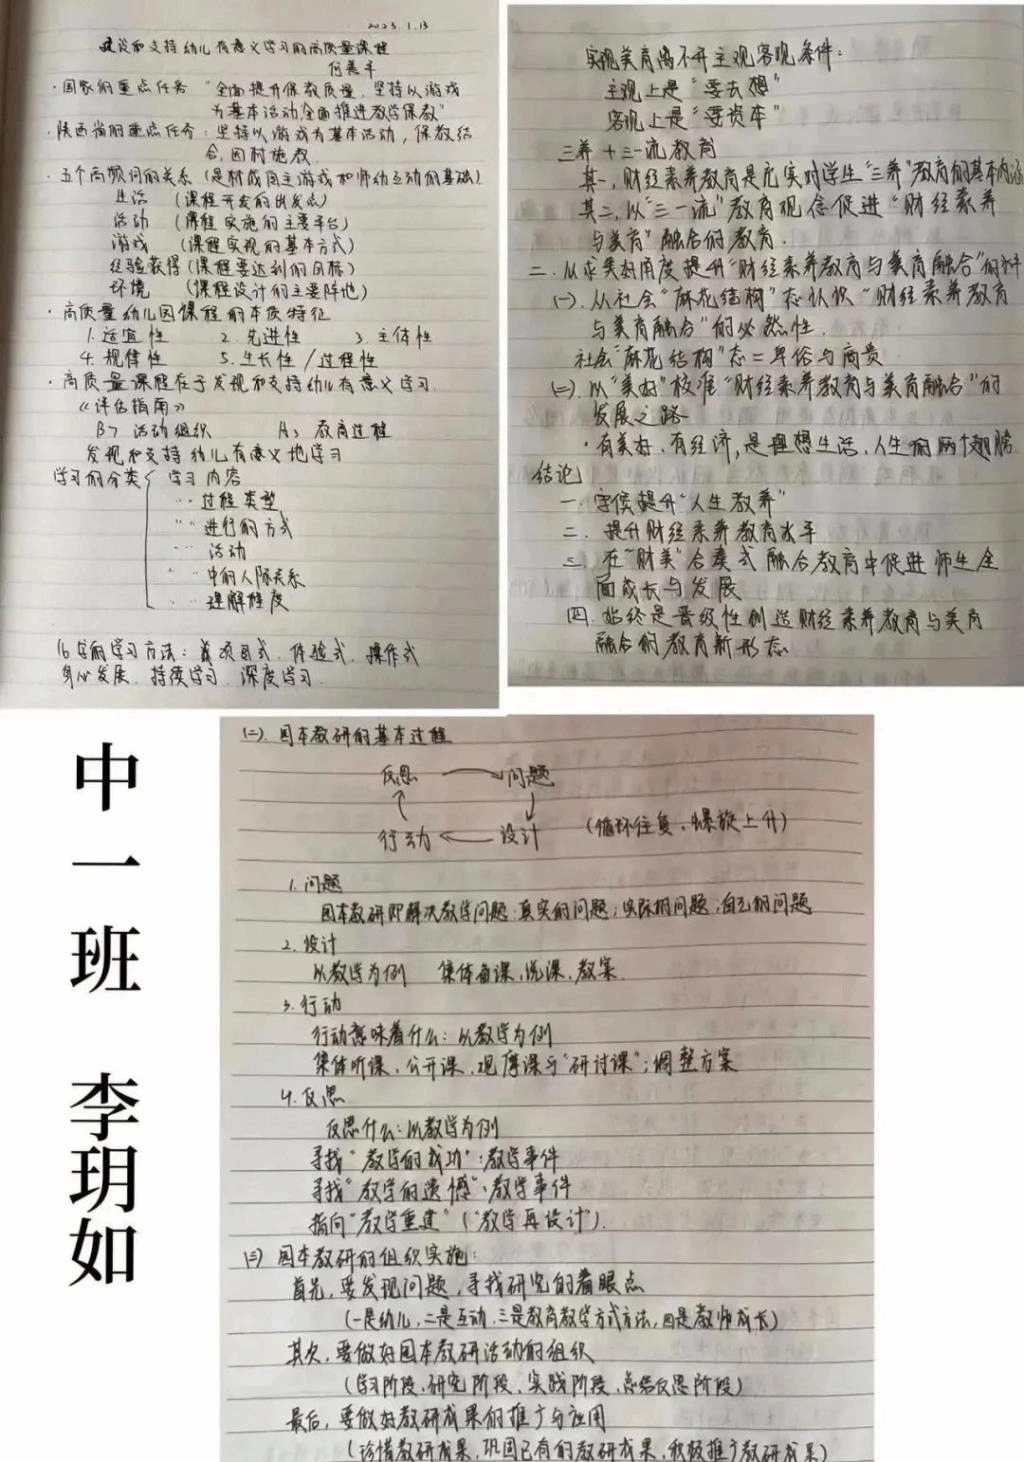 2023.1.13
建设和支持幼儿有意义学习的高质量课程
何善平
·国家的重点任务 "全面提升保教质量，坚持以游戏
为基本活动，全面推进教学保教"
·陕西省的重点任务：坚持以游戏为基本活动，保教结
合，因材施教.
·五个高频词的关系（是材成自主游戏和师幼互动的基础）
生活 （课程开发的出发点）
活动 （课程实施的主要平台）
游戏 （课程实现的基本方式）
经验获得（课程要达到的目标）
环境 （课程设计的主要阵地）
·高质量幼儿园课程的本质特征
1.适宜性 2.先进性 3.主体性
4.规律性 5.生长性/过程性
·高质量课程在于发现和支持幼儿有意义学习.
《评估指南》
B7 活动组织 A3 教育过程
发现和支持幼儿有意义地学习
学习的分类 学习内容
‥ 过程类型
‥ 进行的方式
‥ 活动
‥ 中的人际关系
‥ 理解程度
的学习方法：项目式、体验式、操作式
身心发展、持续学习、深度学习.
实现美育离不开主观客观条件：
主观上是"要去想"
客观上是"要资本"
三养+三一流教育
其一，财经素养教育是充实对学生"三养"教育的基本内涵
其二，以"三一流"教育观念促进"财经素养
与美育"融合的教育.
二.从求美好角度提升"财经素养教育与美育融合"的水平
(一).从社会"麻花结构"态认识"财经素养教育
与美育融合"的必然性.
社会"麻花结构"态=卑俗与商贵
(二).以"美好"校准"财经素养教育与美育融合"的
发展之路
·有美好、有经济，是理想生活、人生的两个翅膀
结论
一.守候提升"人生教养"
二.提升财经素养教育水平
三.在"财美"合奏式融合教育中促进师生全
面成长与发展
四.始终是晋级性创造财经素养教育与美育
融合的教育新形态
中一班 李玥如
(二).园本教研的基本过程
反思 → 问题
↑ ↓
行动 ← 设计 （循环往复、螺旋上升）
1.问题
园本教研即解决教学问题：真实的问题；实际的问题；自己的问题
2.设计
以教学为例 集体备课、说课、教案.
3.行动
行动意味着什么：以教学为例
集体听课、公开课、观摩课与"研讨课"；调整方案
4.反思
反思什么：以教学为例
寻找"教学的成功"：教学事件
寻找"教学的遗憾"：教学事件
指向"教学重建"（"教学再设计"）.
(三) 园本教研的组织实施：
首先，要发现问题，寻找研究的着眼点
（一是幼儿，二是互动，三是教育教学方式方法，四是教师成长）
其次，要做好园本教研活动的组织
（学习阶段、研究阶段、实践阶段、总结反思阶段）
最后，要做好教研成果的推广与应用
（珍惜教研成果，巩固已有的教研成果，积极推广教研成果）